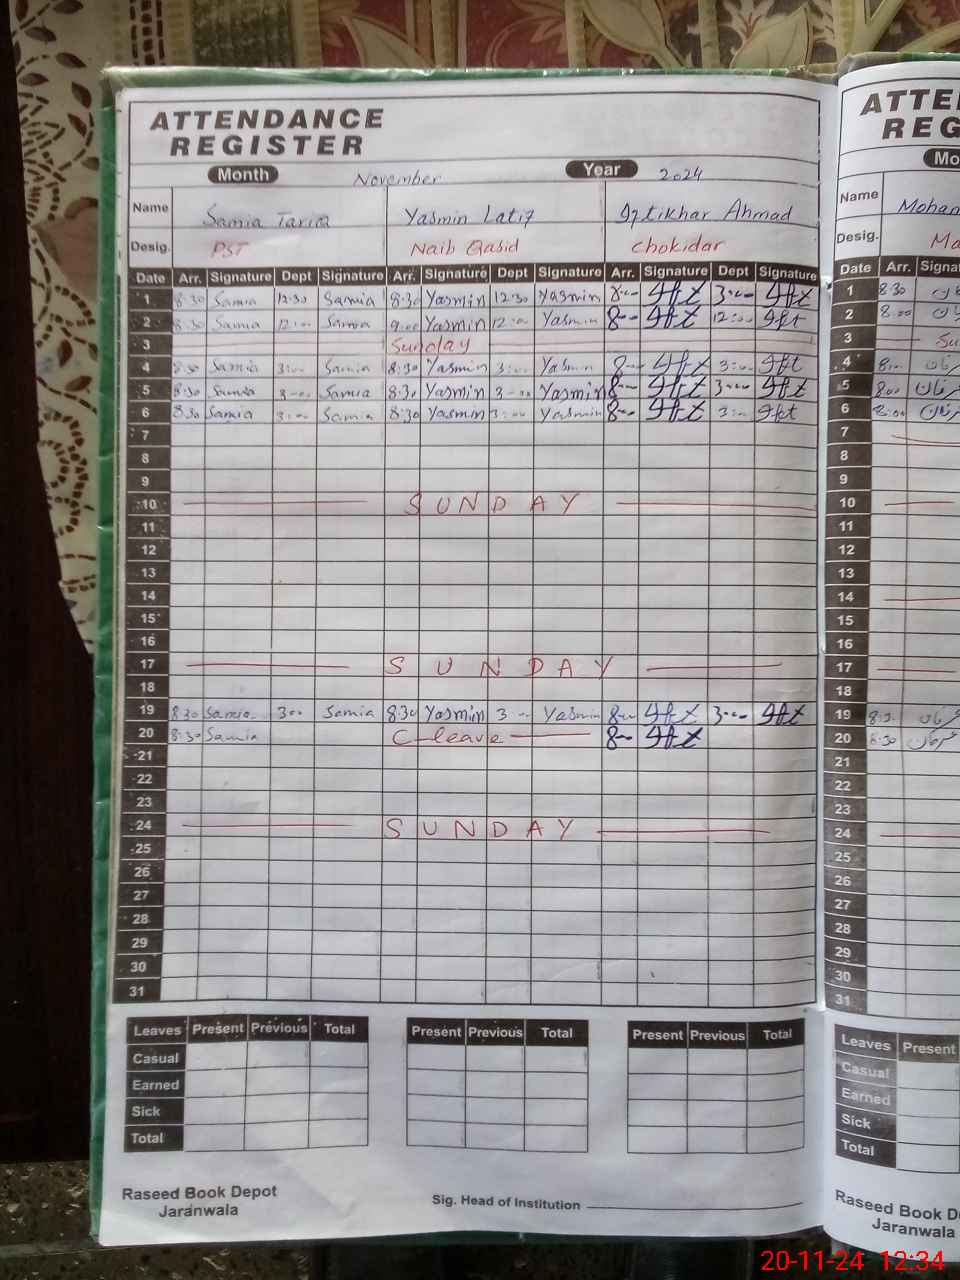 ATTENDANCE REGISTER
Month November Year 2024
Name Samia Tariq Yasmin Latif Iftikhar Ahmad
Desig. PST Naib Qasid Chokidar
Date Arr. Signature Dept Signature Arr. Signature Dept Signature Arr. Signature Dept Signature
1 8:30 Samia 12:30 Samia 8:30 Yasmin 12:30 Yasmin 8:00 Ift 3:00 Ift
2 8:30 Samia 12:00 Samia 9:00 Yasmin 12:00 Yasmin 8:00 Ift 12:00 Ift
3 Sunday
4 8:30 Samia 3:00 Samia 8:30 Yasmin 3:00 Yasmin 8:00 Ift 3:00 Ift
5 8:30 Samia 3:00 Samia 8:30 Yasmin 3:00 Yasmin 8:00 Ift 3:00 Ift
6 8:30 Samia 3:00 Samia 8:30 Yasmin 3:00 Yasmin 8:00 Ift 3:00 Ift
7
8
9
10 SUNDAY
11
12
13
14
15
16
17 SUNDAY
18
19 8:30 Samia 3:00 Samia 8:30 Yasmin 3:00 Yasmin 8:00 Ift 3:00 Ift
20 8:30 Samia C-leave 8:00 Ift
21
22
23
24 SUNDAY
25
26
27
28
29
30
31
Leaves Present Previous Total Present Previous Total Present Previous Total
Casual
Earned
Sick
Total
Raseed Book Depot
Jaranwala
Sig. Head of Institution
ATTEN
REG
Mo
Name Moham
Desig. Ma
Date Arr. Signat
1 8:30
2 8:00
3 Su
4 8:00
5 8:00
6 8:00
7
8
9
10
11
12
13
14
15
16
17
18
19
20 8:30
21
22
23
24
25
26
27
28
29
30
31
Leaves Present
Casual
Earned
Sick
Total
Raseed Book D
Jaranwala
20-11-24 12:34